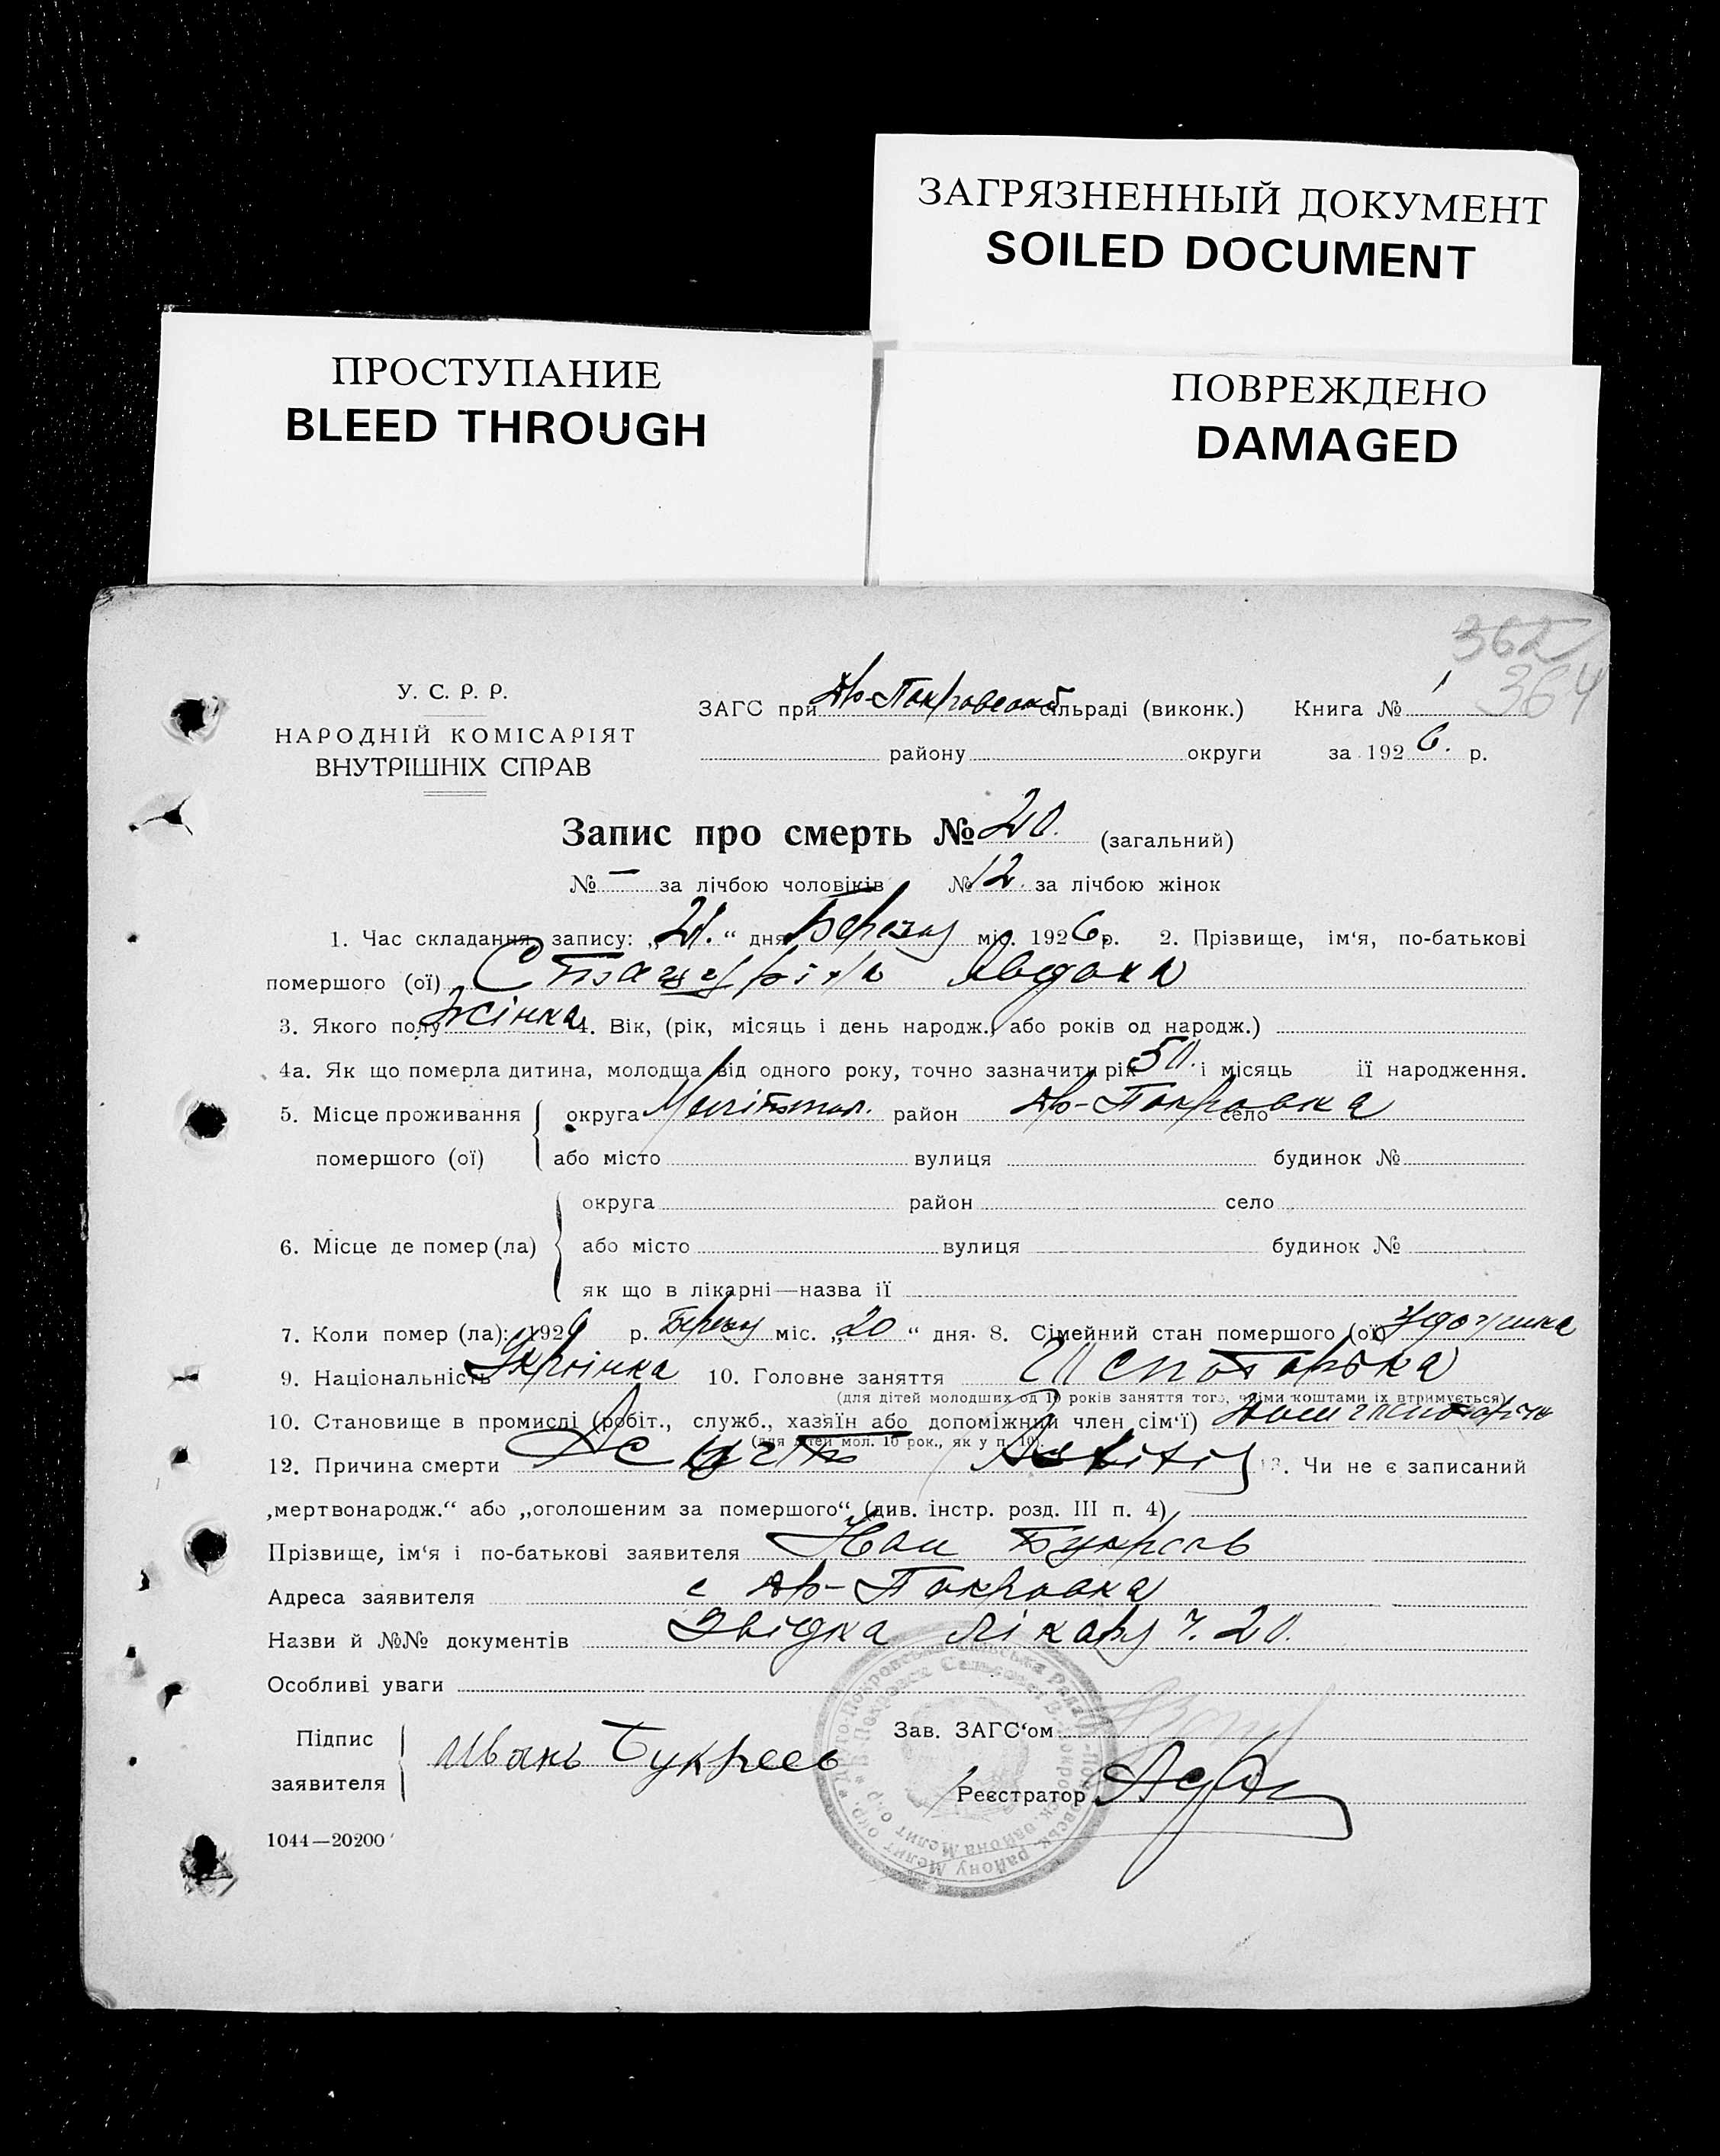 ЗАГРЯЗНЕННЫЙ ДОКУМЕНТ
SOILED DOCUMENT
ПРОСТУПАНИЕ
BLEED THROUGH
ПОВРЕЖДЕНО
DAMAGED
362
364
У. С. Р. Р.
НАРОДНІЙ КОМІСАРІЯТ
ВНУТРІШНІХ СПРАВ
ЗАГС при Ар-Покровській сільраді (виконк.) Книга № 1
району округи за 1926. р.
Запис про смерть № 20. (загальний)
№ — за лічбою чоловіків № 12. за лічбою жінок
1. Час складання запису: „21.“ дня Березня міс. 1926 р. 2. Прізвище, ім‘я, по-батькові
помершого (ої) Явдоха
3. Якого полу Жінка 4. Вік, (рік, місяць і день народж., або років од народж.)
4а. Як що померла дитина, молодща від одного року, точно зазначити рік 50. і місяць її народження.
5. Місце проживання помершого (ої) округа Мелітоп. район Ар-Покровка село
або місто вулиця будинок №
6. Місце де помер (ла) округа район село
або місто вулиця будинок №
як що в лікарні—назва її
7. Коли помер (ла): 1926 р. Березня міс. „20“ дня. 8. Сімейний стан помершого (ої)
9. Національність Українка 10. Головне заняття
(для дітей молодших од 10 років заняття того, чиїми коштами їх втримується)
10. Становище в промислі (робіт., служб., хазяїн або допоміжний член сім‘ї)
(для дітей мол. 10 рок., як у п. 10).
12. Причина смерти 13. Чи не є записаний
„мертвонародж.“ або „оголошеним за помершого“ (див. інстр. розд. III п. 4)
Прізвище, ім‘я і по-батькові заявителя Іван Букреєв
Адреса заявителя с Ар-Покровка
Назви й №№ документів Звідка лікаря ч. 20.
Особливі уваги
Підпис заявителя Иванъ Букреев
Зав. ЗАГС‘ом
Реєстратор
1044—20200